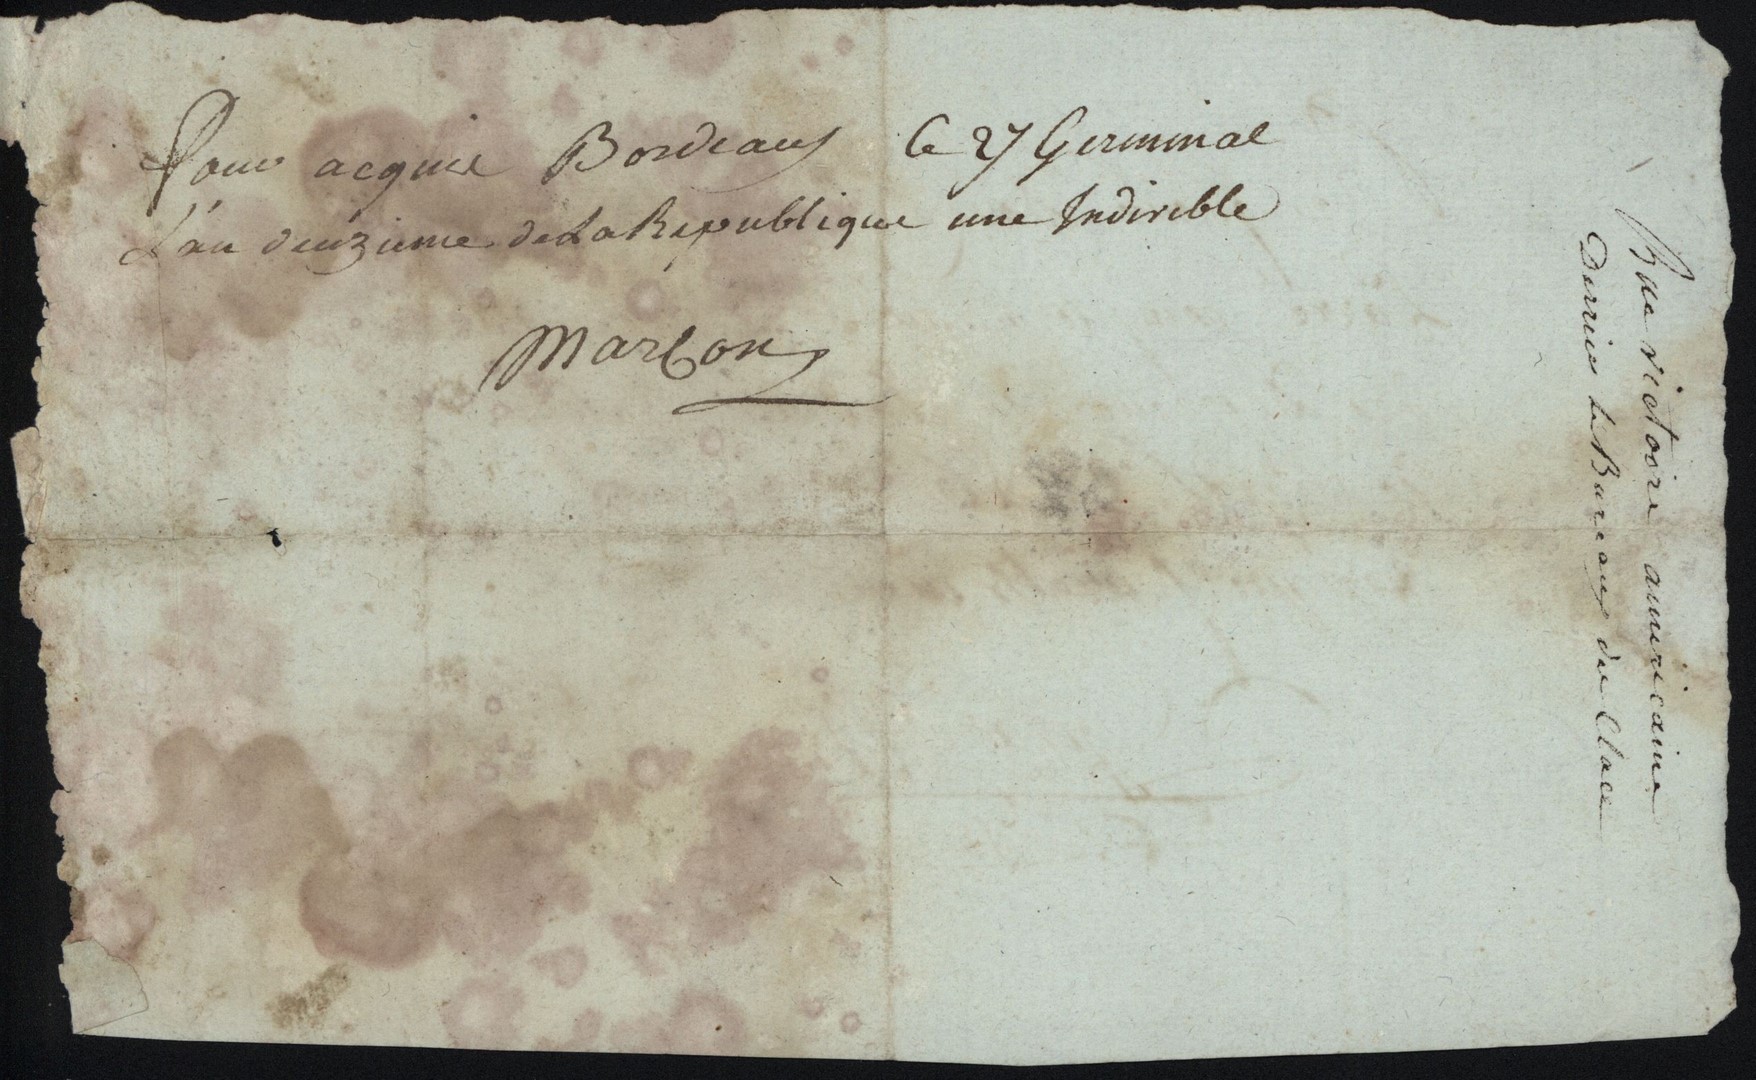 Pour acquit Bordeaux le 27 Germinal
L'an deuzieme de La Republique une Indivible
Marcon
Rue victoire americaine
Derrier le Bureaux du